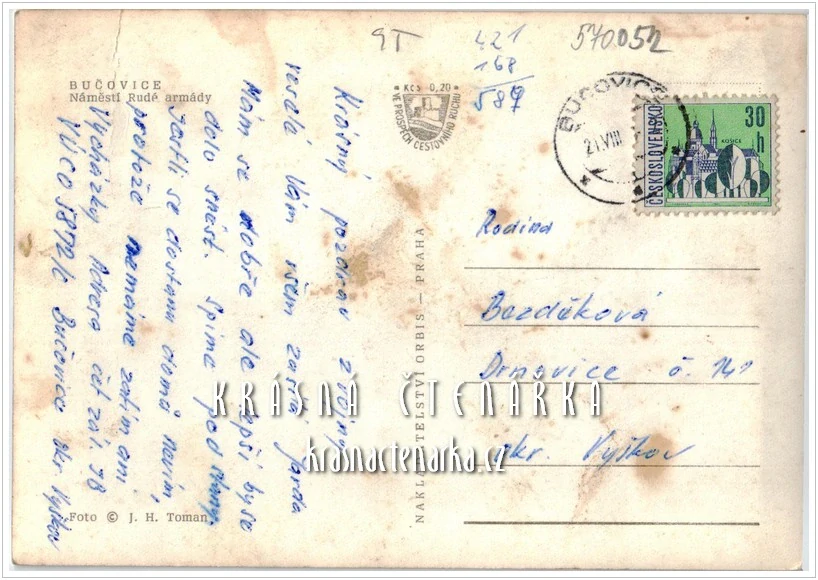 BUČOVICE
Náměstí Rudé armády
ST
421
168
589
570052
KČS 0,20
VE PROSPĚCH CESTOVNÍHO RUCHU
BUČOVICE
21.VIII
30 h
KOŠICE
ČESKOSLOVENSKO
Krásný pozdrav z vojny
vesele Vám všem zasílá Jarda
Mám se dobře ale lepší by se
dalo snést. Spíme pod stany.
Jestli se dostanu domů nevím,
protože nemáme zatím ani
vycházky Adresa čet zál. JB
VÚ CO 5872/6 Bučovice okr. Vyškov
NAKLADATELSTVÍ ORBIS — PRAHA
Rodina
Bezděková
Drnovice č. 141
okr. Vyškov
KRÁSNÁ ČTENÁŘKA
krasnactenarka.cz
Foto © J. H. Toman